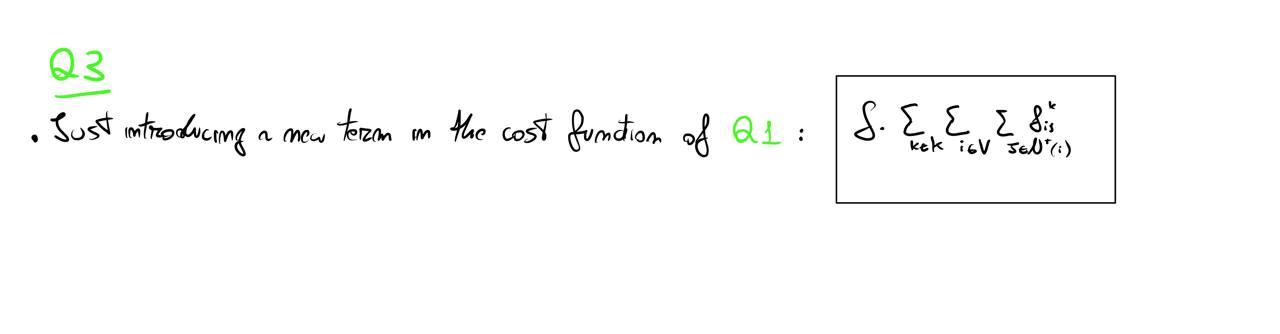 Q3
. Just introducing a new term in the cost function of Q1 : δ · ∑ ∑ ∑ δᵢⱼᵏ
k∈K i∈V J∈N⁺(i)